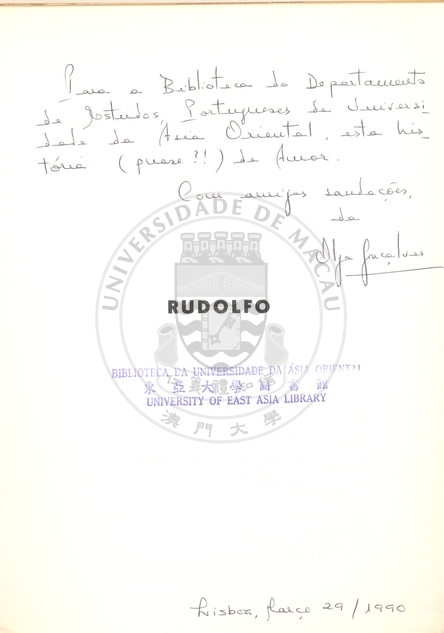 Para a Biblioteca do Departamento
de Estudos Portugueses da Universi-
dade da Ásia Oriental, esta his-
tória (quase?!) de Amor.
Com amigas saudações,
da
Olga Gonçalves
UNIVERSIDADE DE MACAU
RUDOLFO
BIBLIOTECA DA UNIVERSIDADE DA ÁSIA ORIENTAL
東亞大學圖書館
UNIVERSITY OF EAST ASIA LIBRARY
仁義禮知信
澳門大學
Lisboa, Março 29/1990